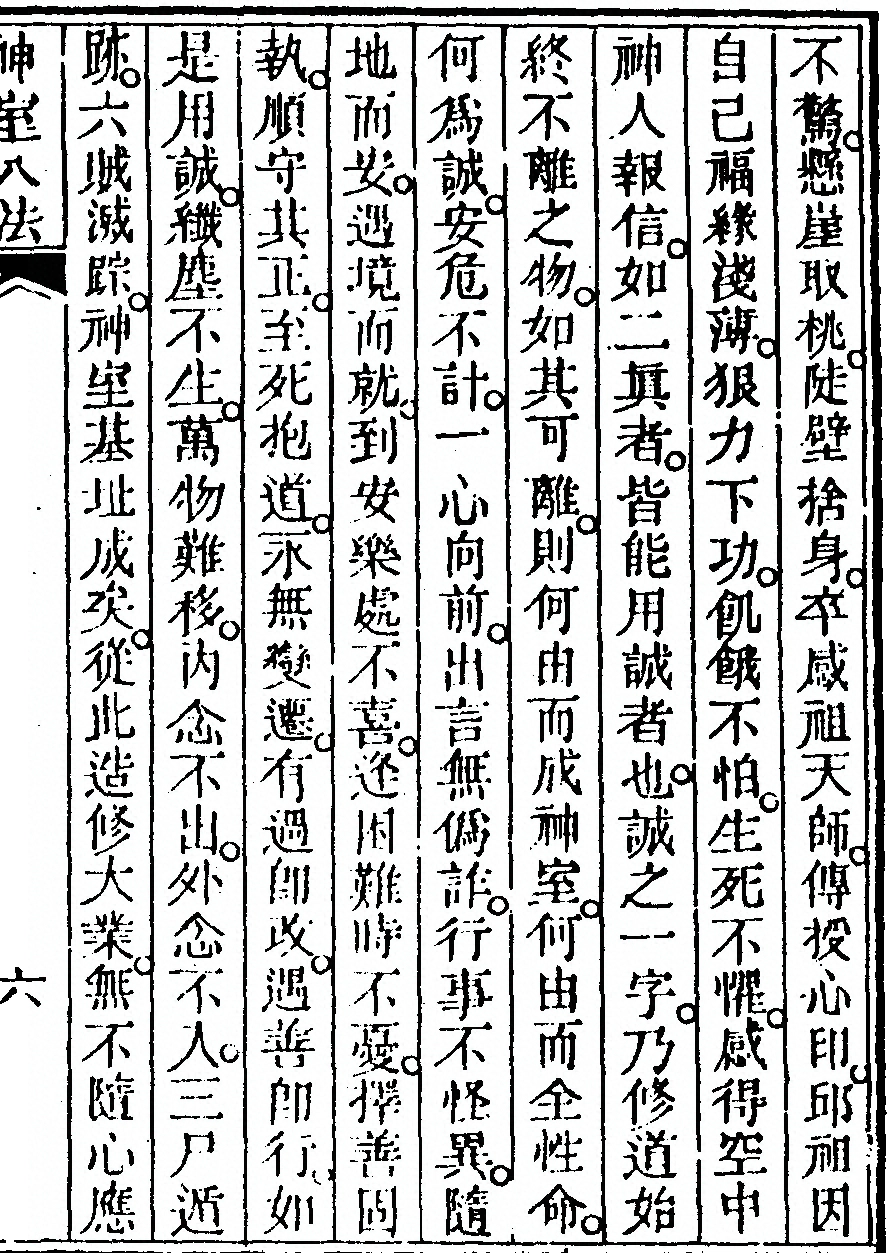 不驚。懸崖取桃。陡壁捨身。卒感祖天師。傳授心印。邱祖因
自己福緣淺薄。狠力下功。飢餓不怕。生死不懼。感得空中
神人報信。如二眞者。皆能用誠者也。誠之一字。乃修道始
終不離之物。如其可離。則何由而成神室。何由而全性命。
何爲誠。安危不計。一心向前。出言無僞詐。行事不怪異。隨
地而安。遇境而就。到安樂處不喜。逢困難時不憂。擇善固
執。順守其正。至死抱道。永無變遷。有過卽改。遇善卽行。如
是用誠。纖塵不生。萬物難移。內念不出。外念不入。三尸遁
跡。六賊滅踪。神室基址成矣。從此造修大業。無不隨心應
神室八法
六